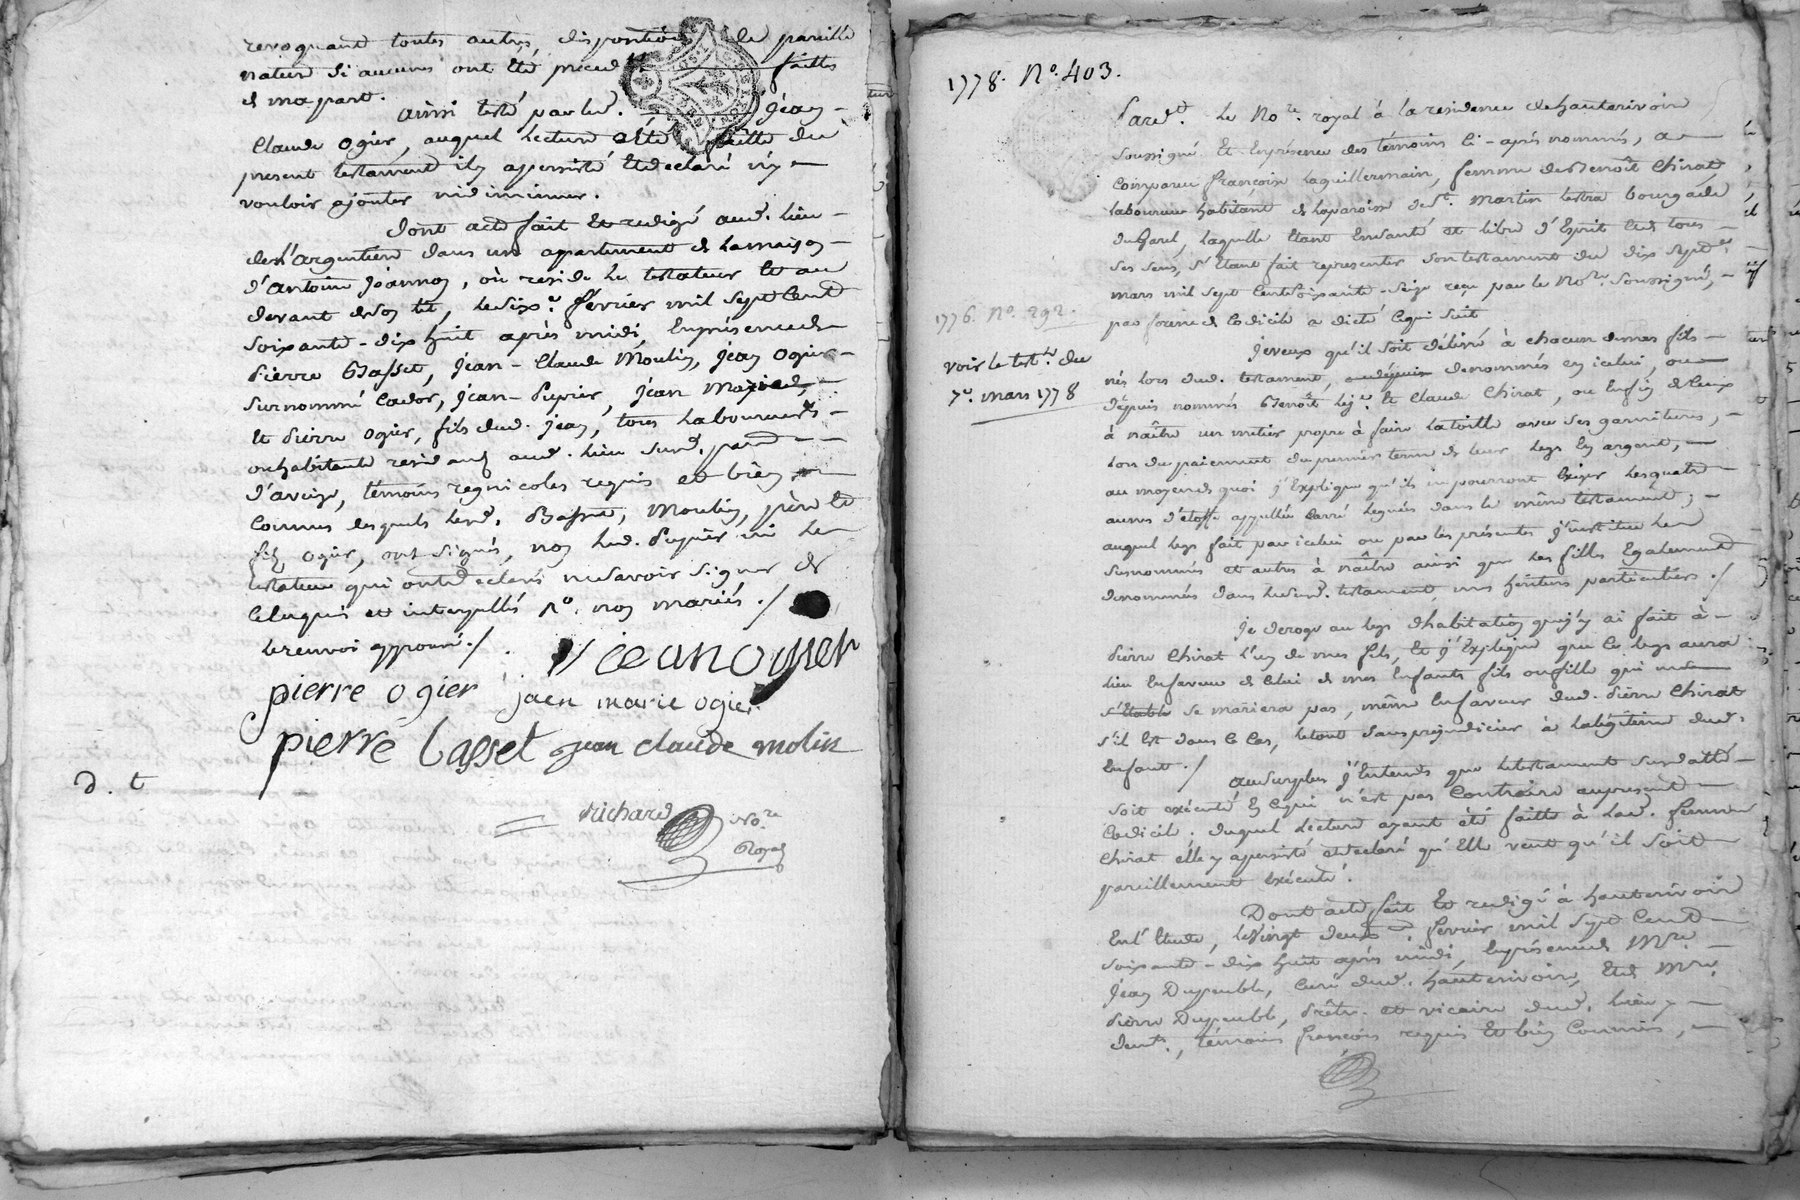 revoquant toutes autres dispositions de pareille
nature si aucunes ont été préced faittes
de ma part.
ainsi testé par led. Jean-
Claude Ogier, auquel lecture a été faitte du
present testament il y a persisté et declaré n'y
vouloir ajouter ni diminuer.
dont acte fait et redigé aud. lieu
de l'argentiere dans un appartement de la maison
d'antoine Joannon, où reside le testateur et au
devant de son lit, le dix.e février mil sept cent
soixante-dix huit après midi, en présence de
Pierre Basset, Jean-Claude Moulin, Jean Ogier
surnommé Cador, Jean Pupier, Jean Marie
et Pierre Ogier, fils dud. Jean, tous laboureurs
ou habitants residants aud. lieu susd. par.
d'aveize, témoins regnicoles requis et bien
connus lesquels lesd. Basset, Moulin, père et
fils Ogier, ont signés, non led. Pupier ni le
testateur qui ont declarés ne savoir signer de
ce enquis et interpellés no. non mariés ./
le renvoi approuvé ./ Jean ogier
pierre ogier jaen marie ogier
pierre basset jean claude molin
d. t
Richard No.re
Royal
1778. No. 403.
Pardt. le No.re royal à la residence de hauterivoire
soussigné et en présence des témoins ci-après nommés, a
comparu françoise laguillermain, femme de Benoît Chirat
laboureur habitant de la paroisse de St. Martin lestra bourgade
du garel, laquelle étant en santé et libre d'esprit et de tous
ses sens, s'étant fait representer son testament du dix sept.e
mars mil sept cent soixante-seize reçu par le No.re soussigné,
par forme de Codicile a dicté ce qui suit
1776. No. 292.
voir le test.t du
7e. mars 1778
Je veux qu'il soit délivré à chacun de mes fils
nés lors dud. testament, denommés en icelui, ou
dépuis nommés Benoît et Claude Chirat, ou enfin de ceux
à naître un metier propre à faire la toille avec ses garnitures,
lors du paiement du premier terme de leur legs en argent,
au moyen de quoi j'explique qu'ils ne pourront exiger les quatre
aunes d'étoffe appellée carré leguées dans le même testament;
auquel legs fait par icelui ou par les présentes j'institue les
susnommés et autres à naître ainsi que les filles également
denommées dans led. testament, mes héritiers particuliers ./
Je deroge au legs d'habitation que j'y ai fait à
Pierre Chirat l'un de mes fils, et j'explique que ce legs aura
lieu en faveur de celui de mes enfants fils ou fille qui ne
s'établi se mariera pas, même en faveur dud. Pierre Chirat
s'il est dans ce cas, le tout sans prejudicier à la légitime desd.
enfants ./
au surplus j'entends que le testament susdatté
soit exécuté en ce qui n'est pas contraire au present
Codicile. duquel lecture ayant été faitte à lad. femme
Chirat elle y a persisté et declaré qu'elle veut qu'il soit
pareillement exécuté.
Dont acte fait et redigé à hauterivoire
en l'étude, le vingt deux.e février mil sept cent
soixante-dix huit après midi, en présence de Mre.
Jean Dupeuble, curé dud. hauterivoire, et de Mre.
Pierre Dupeuble, prêtre et vicaire dud. lieu y
demt., témoins françois requis et bien connus,